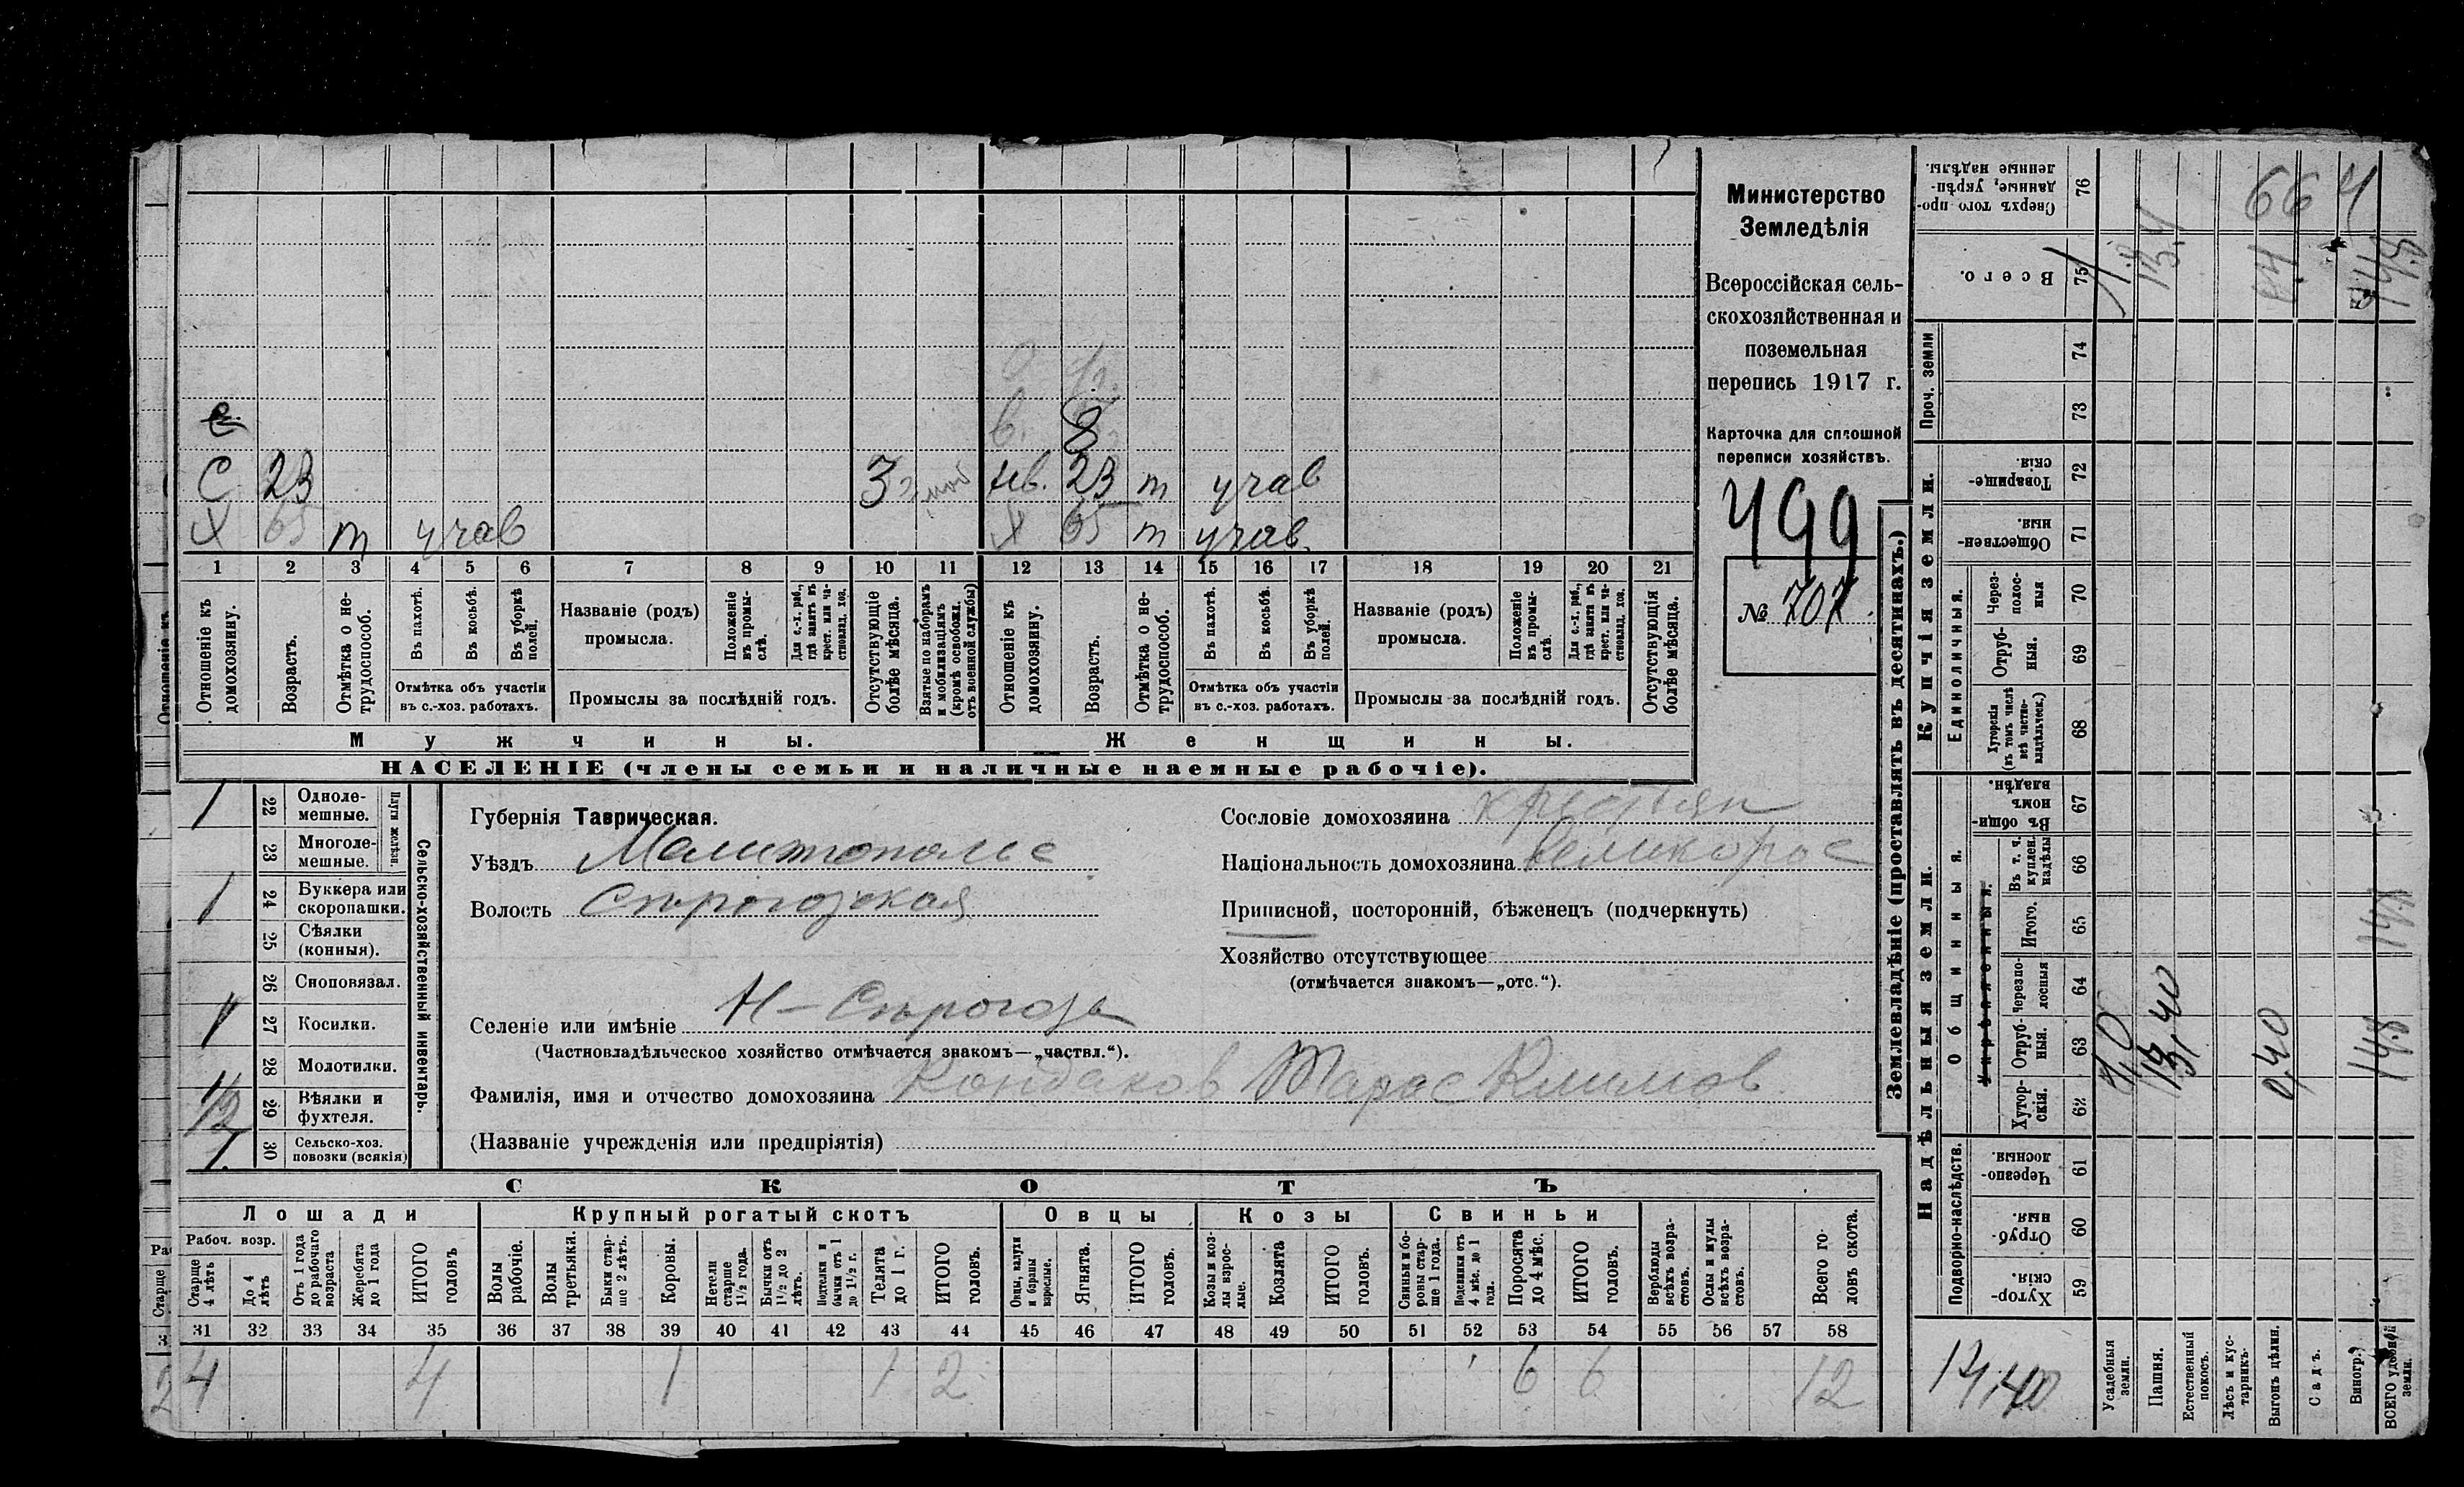 Министерство
Земледѣлія
Всероссійская сель-
скохозяйственная и
поземельная
перепись 1917 г.
Карточка для сплошной
переписи хозяйствъ.
499
№ 707
С 23 3 нев. 23 т учав
Х 65 т учав Х 65 т учав.
1 2 3 4 5 6 7 8 9 10 11 12 13 14 15 16 17 18 19 20 21
Отношеніе къ домохозяину.
Возрастъ.
Отмѣтка о не-трудоспособ.
Въ пахотѣ.
Въ косьбѣ.
Въ уборкѣ полей.
Отмѣтка объ участіи
въ с.-хоз. работахъ.
Названіе (родъ)
промысла.
Положеніе въ промы-слѣ.
Для с.-х. раб., гдѣ занятъ въ крест. или ча-стновлад. хоз.
Промыслы за послѣдній годъ.
Отсутствующіе болѣе мѣсяца.
Взятые по наборамъ и мобилизаціямъ (кромѣ освобожд. отъ военной службы)
Отношеніе къ домохозяину.
Возрастъ.
Отмѣтка о не-трудоспособ.
Въ пахотѣ.
Въ косьбѣ.
Въ уборкѣ полей.
Отмѣтка объ участіи
въ с.-хоз. работахъ.
Названіе (родъ)
промысла.
Положеніе въ промы-слѣ.
Для с.-х. раб., гдѣ занята въ крест. или ча-стновлад. хоз.
Промыслы за послѣдній годъ.
Отсутствующія болѣе мѣсяца.
Мужчины.
Женщины.
НАСЕЛЕНІЕ (члены семьи и наличные наемные рабочіе).
Сельско-хозяйственный инвентарь.
1 22 Одноле-мешные.
23 Многоле-мешные.
1 24 Буккера или скоропашки.
25 Сѣялки (конныя).
26 Сноповязал.
1 27 Косилки.
28 Молотилки.
1/2 29 Вѣялки и фухтеля.
1. 30 Сельско-хоз. повозки (всякія)
Губернія Таврическая.
Уѣздъ Мелитопольс
Волость Сѣрогозская
Селеніе или имѣніе Н-Сѣрогозы
(Частновладѣльческое хозяйство отмѣчается знакомъ—„частвл.“).
Фамилія, имя и отчество домохозяина Кондаков Тарас Климов.
(Названіе учрежденія или предпріятія)
Сословіе домохозяина крестьян
Національность домохозяина великорос
Приписной, посторонній, бѣженецъ (подчеркнуть)
Хозяйство отсутствующее
(отмѣчается знакомъ—„отс.“).
СКОТЪ
Лошади
Крупный рогатый скотъ
Овцы
Козы
Свиньи
Рабоч. возр.
Старше 4 лѣтъ
До 4 лѣтъ
Отъ 1 года до рабочаго возраста
Жеребята до 1 года
ИТОГО головъ
Волы рабочіе.
Волы третьяки.
Быки стар-ше 2 лѣтъ.
Коровы.
Нетели старше 1 1/2 года.
Бычки отъ 1 1/2 до 2 лѣтъ.
Подтелки и бычки отъ 1 до 1 1/2 г.
Телята до 1 г.
ИТОГО головъ.
Овцы, валухи и бараны взрослые.
Ягнята.
ИТОГО головъ.
Козы и коз-лы взрос-лые.
Козлята
ИТОГО головъ.
Свиньи и бо-ровы стар-ше 1 года.
Подсвинки отъ 4 мѣс. до 1 года.
Поросята до 4 мѣс.
ИТОГО головъ.
Верблюды всѣхъ возра-стовъ.
Ослы и мулы всѣхъ возра-стовъ.
Всего го-ловъ скота.
31 32 33 34 35 36 37 38 39 40 41 42 43 44 45 46 47 48 49 50 51 52 53 54 55 56 57 58
4 4 1 1 2 6 6 12
Землевладѣніе (проставлять въ десятинахъ.)
Надѣльныя земли.
Купчія земли.
Проч. земли
Подворно-наслѣдств.
Общинныя.
Укрѣпленныя.
Единоличныя.
Сверхъ того про-данные, укрѣп-ленные надѣлы. 76
Всего. 75
74
73
Товарище-скія. 72
Обществен-ныя. 71
Через-полос-ныя 70
Отруб-ныя. 69
Хуторскія (въ томъ числѣ всѣ частно-владѣльческ.) 68
Въ общи-номъ владѣн. 67
Въ т. ч. куплен. надѣлы 66
Итого. 65
Черезпо-лосныя 64
Отруб-ныя. 63
Хутор-скія. 62
Черезпо-лосныя. 61
Отруб-ныя. 60
Хутор-скія. 59
Усадебныя земли.
Пашня.
Естественный покосъ.
Лѣсъ и кус-тарникъ.
Выгонъ цѣлин.
Садъ.
Виногр.
ВСЕГО удобной земли.
1,0
13,40
0,40
14,8
14,40
13,4
664